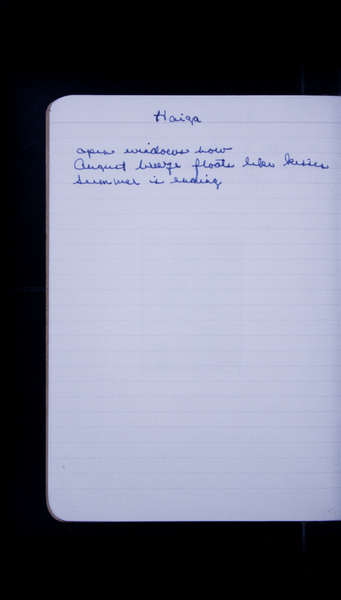 Haiga
open windows now
August breeze floats like kisses
summer is ending